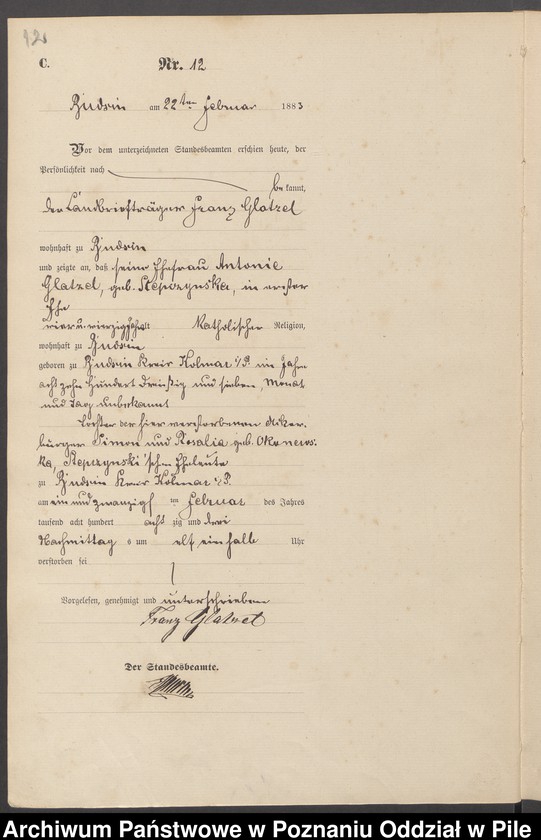 12
C. Nr. 12
Budsin am 22ten Februar 1883
Vor dem unterzeichneten Standesbeamten erschien heute, der
Persönlichkeit nach
be kannt,
der Landbriefträger Franz Glatzel
wohnhaft zu Budsin
und zeigte an, daß seine Ehefrau Antonie
Glatzel, geb. Stepczynska, in erster
Ehe
vierundvierzig Jahre alt katholischer Religion,
wohnhaft zu Budsin
geboren zu Budsin Kreis Kolmar i/P. im Jahre
acht zehn hundert dreißig und sieben, Monat
und Tag unbekannt
Tochter der hier verstorbenen Acker-
bürger Simon und Rosalia geb.
Stepczynski'schen Eheleute
zu Budsin Kreis Kolmar i/P.
am ein und zwanzigst ten Februar des Jahres
tausend acht hundert acht zig und drei
Nachmittag s um elf ein halb Uhr
verstorben sei
Vorgelesen, genehmigt und unterschrieben
Franz Glatzel
Der Standesbeamte.
Archiwum Państwowe w Poznaniu Oddział w Pile